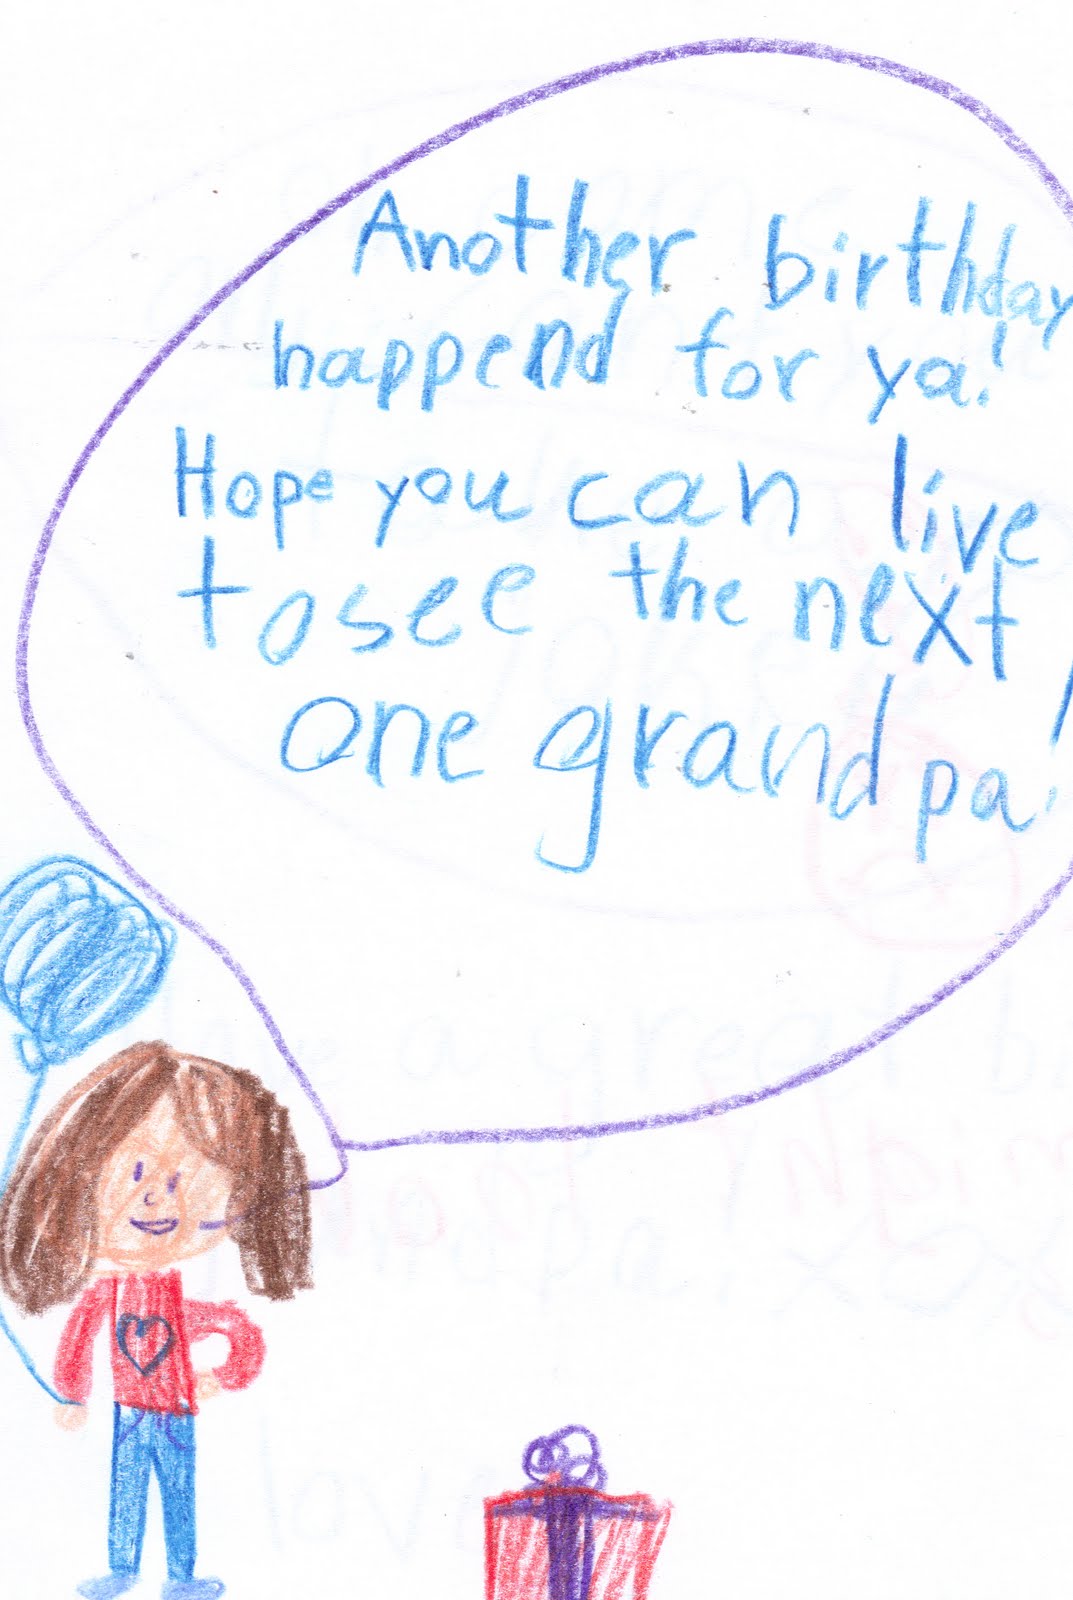 Another birthday
happend for ya!
Hope you can live
to see the next
one grandpa!